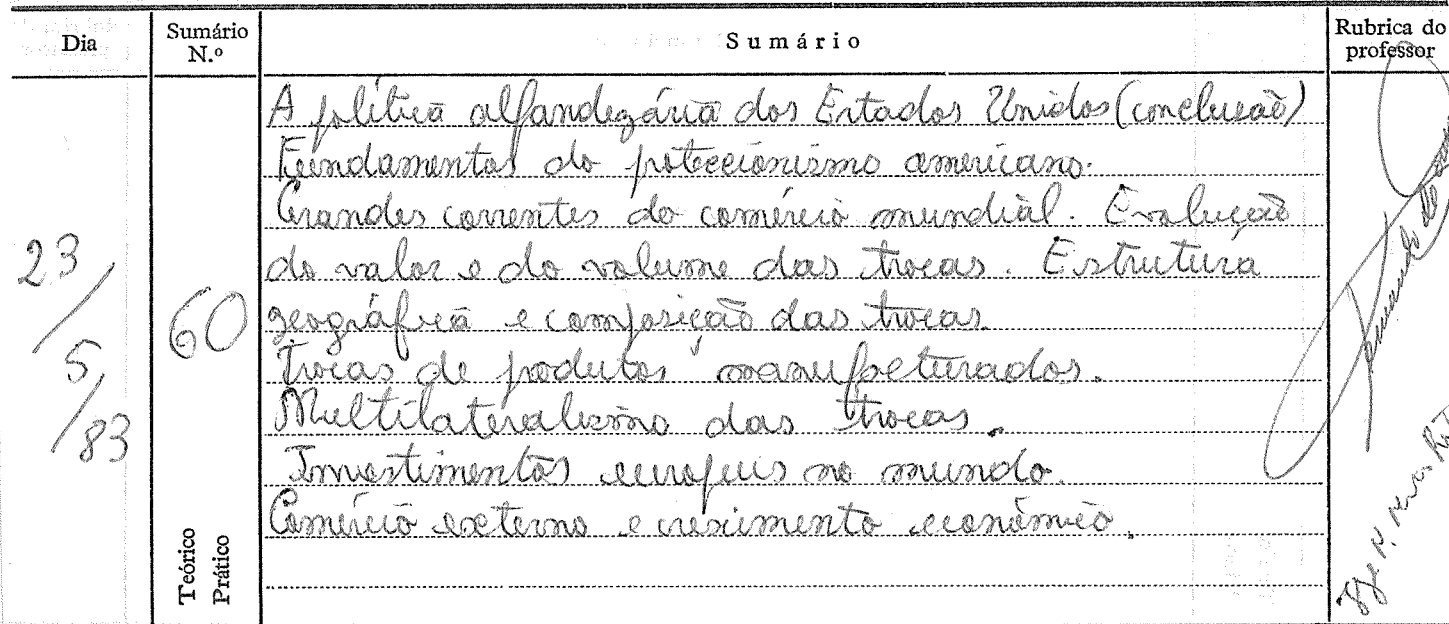 Dia
Sumário
N.º
Sumário
Rubrica do
professor
23/5/83
60
Teórico
Prático
A política alfandegária dos Estados Unidos (conclusão)
Fundamentos do proteccionismo americano.
Grandes correntes do comércio mundial. Evolução
do valor e do volume das trocas. Estrutura
geográfica e composição das trocas.
Trocas de produtos manufacturados.
Multilateralismo das trocas.
Investimentos europeus no mundo.
Comércio externo e crescimento económico.